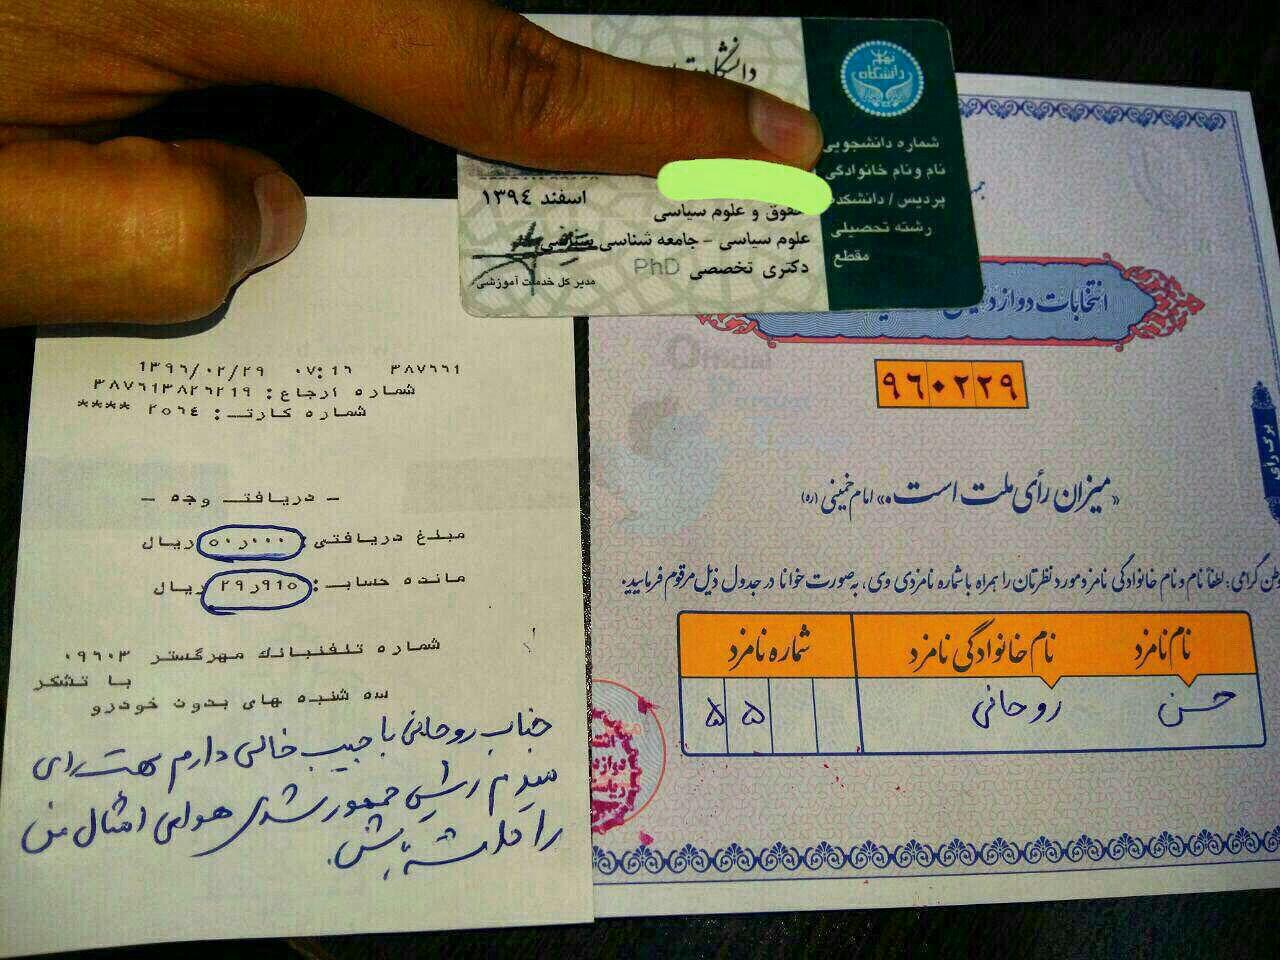 دانشگاه
تهران
دانشگاه
شماره دانشجویی
نام و نام خانوادگی
پردیس / دانشکده
حقوق و علوم سیاسی
رشته تحصیلی
علوم سیاسی - جامعه شناسی سیاسی
مقطع
دکتری تخصصی PhD
اسفند ١٣٩٤
مدیر کل خدمات آموزشی
١٣٩٦/٠٢/٢٩ ٠٧:١٦ ٣٨٧٦٦١
شماره ارجاع: ٣٨٧٦١٣٨٢٦٢١٩
شماره کارت: ٢٥٦٤ ****
- دریافت وجه -
مبلغ دریافتی: ٥٠٫٠٠٠ ریال
مانده حساب: ٢٩٫٩١٥ ریال
شماره تلفنبانک مهرگستر ٠٩٦٠٣
با تشکر
سه شنبه های بدون خودرو
جناب روحانی با جیب خالی دارم بهت رای
میدم رئیس جمهور شدی هوای امثال من
را داشته باش.
انتخابات
۹۶۰۲۲۹
برگ رأی
«میزان رأی ملت است.» امام خمینی (ره)
گرامی: لطفاً نام و نام خانوادگی نامزد مورد نظرتان را همراه با شماره نامزدی وی، به صورت خوانا در جدول ذیل مرقوم فرمایید.
نام نامزد نام خانوادگی نامزد شماره نامزد
حسن روحانی ۵ ۵
Official